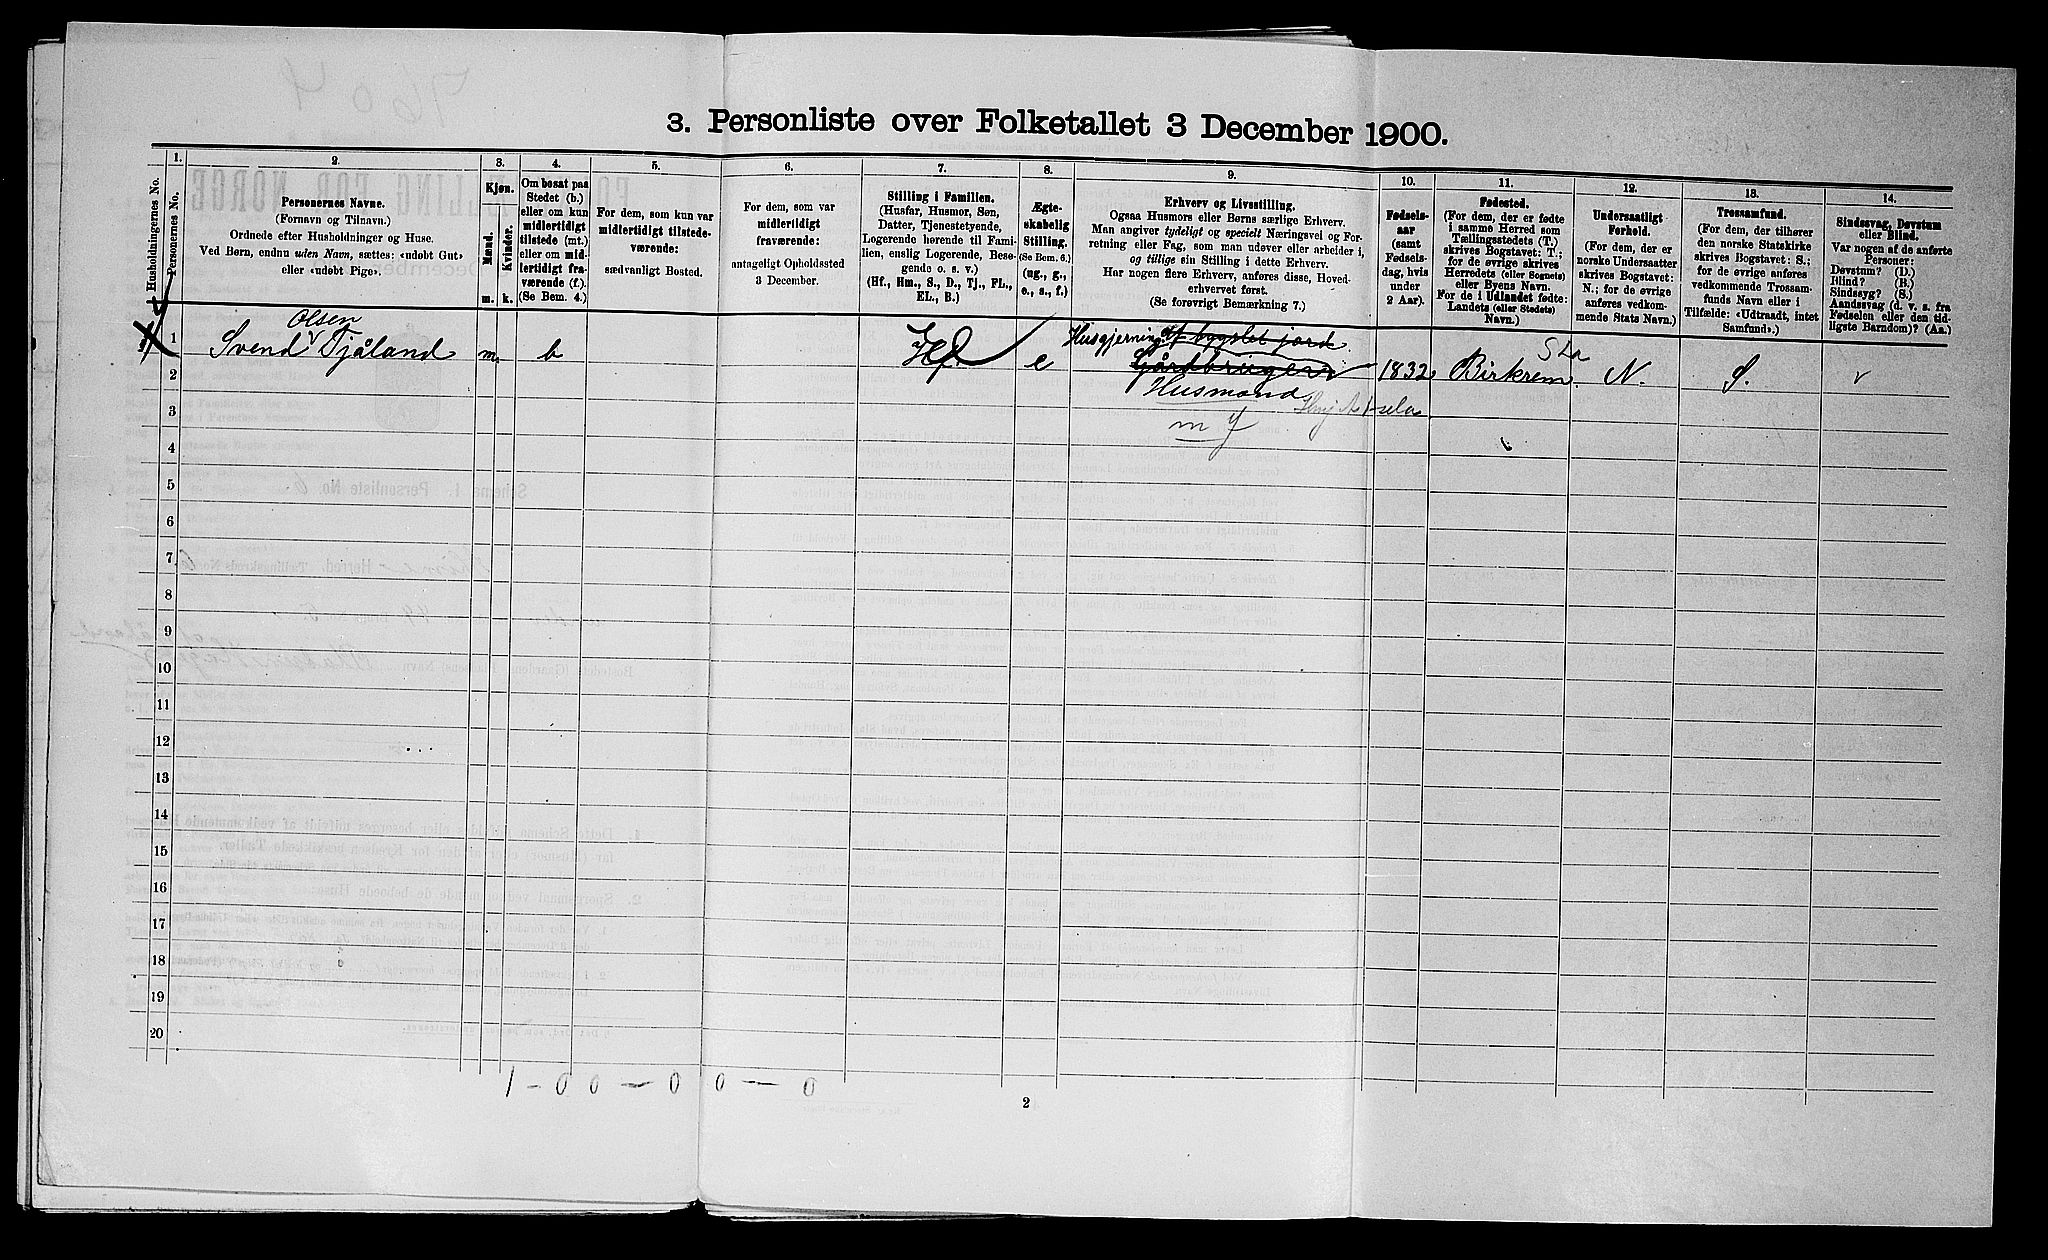 3. Personliste over Folketallet 3 December 1900.
Husholdningernes No.
1.
Personernes No.
2.
Personernes Navne.
(Fornavn og Tilnavn.)
Ordnede efter Husholdninger og Huse.
Ved Børn, endnu uden Navn, sættes: «udøbt Gut»
eller «udøbt Pige».
3.
Kjøn.
Mænd.
Kvinder.
m.
k.
4.
Om bosat paa
Stedet (b.)
eller om kun
midlertidigt
tilstede (mt.)
eller om mid-
lertidigt fra-
værende (f.).
(Se Bem. 4.)
5.
For dem, som kun var
midlertidigt tilstede-
værende:
sædvanligt Bosted.
6.
For dem, som var
midlertidigt
fraværende:
antageligt Opholdssted
3 December.
7.
Stilling i Familien.
(Husfar, Husmor, Søn,
Datter, Tjenestetyende,
Logerende hørende til Fami-
lien, enslig Logerende, Besø-
gende o. s. v.)
(Hf., Hm., S., D., Tj., FL.,
EL., B.)
8.
Ægte-
skabelig
Stilling.
(Se Bem. 6.)
(ug., g.,
e., s., f.)
9.
Erhverv og Livsstilling.
Ogsaa Husmors eller Børns særlige Erhverv.
Man angiver tydeligt og specielt Næringsvei og For-
retning eller Fag, som man udøver eller arbeider i,
og tillige sin Stilling i dette Erhverv.
Har nogen flere Erhverv, anføres disse, Hoved-
erhvervet først.
(Se forøvrigt Bemærkning 7.)
10.
Fødsels-
aar
(samt
Fødsels-
dag, hvis
under
2 Aar).
11.
Fødested.
(For dem, der er fødte
i samme Herred som
Tællingsstedets (T.)
skrives Bogstavet: T.;
for de øvrige skrives
Herredets (eller Sognets)
eller Byens Navn.
For de i Udlandet fødte:
Landets (eller Stedets)
Navn.)
12.
Undersaatligt
Forhold.
(For dem, der er
norske Undersaatter
skrives Bogstavet:
N.; for de øvrige
anføres vedkom-
mende Stats Navn.)
13.
Trossamfund.
(For dem, der tilhører
den norske Statskirke
skrives Bogstav: S.;
for de øvrige anføres
vedkommende Trossam-
funds Navn eller i
Tilfælde: «Udtraadt, intet
Samfund».)
14.
Sindssvag, Døvstum
eller Blind.
Var nogen af de anførte
Personer:
Døvstum? (D.)
Blind? (B.)
Sindssyg? (S.)
Aandssvag (d. v. s. fra
Fødselen eller den tid-
ligste Barndom)? (Aa.)
1
Olsen
Svend Tjåland
m.
b
Hf.
e
Husgjerning af bygslet jord.
Gårdbruger
Husmand
m J
1832
Sta
Birkrem.
N.
S.
2
3
4
5
6
7
8
9
10
11
12
13
14
15
16
17
18
19
20
1 - 0 0 - 0 0 - 0
2